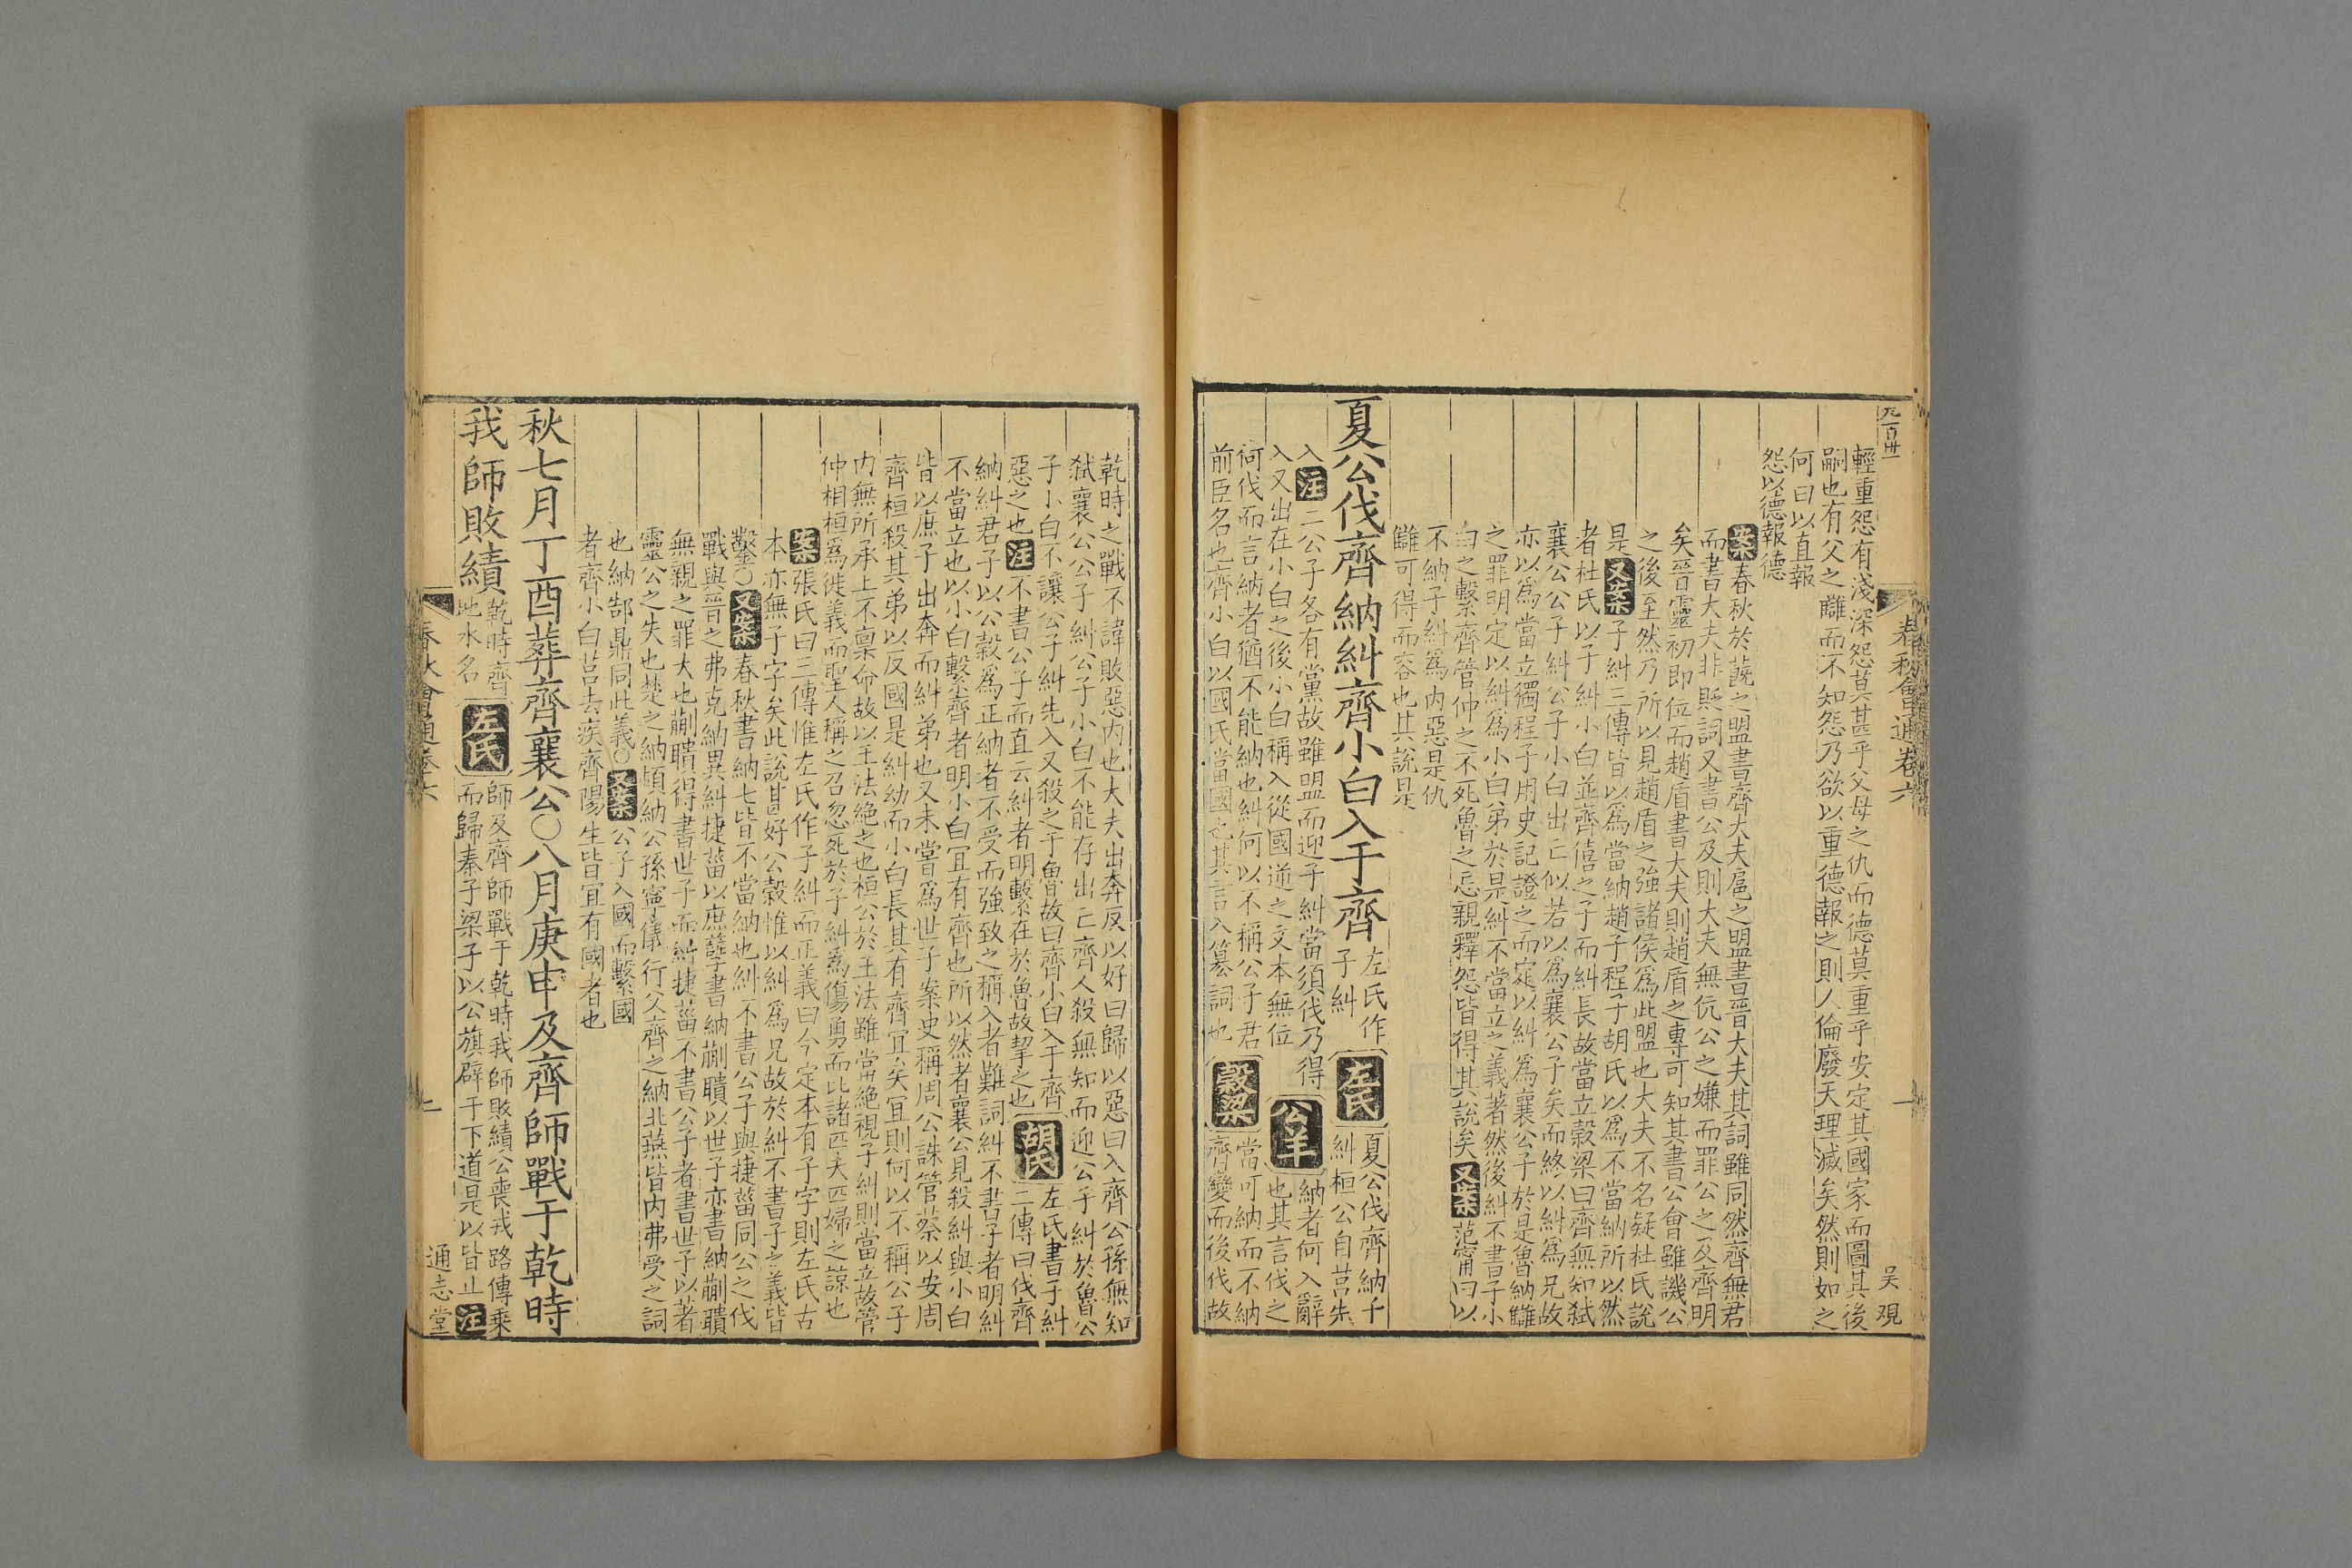 輕重怨有淺深怨莫甚乎父母之仇而德莫重乎安定其國家而圖其後
嗣也有父之讎而不知怨乃欲以重德報之則人倫廢天理滅矣然則如之
何曰以直報
怨以德報德
案春秋於蔇之盟書齊大夫扈之盟書晉大夫其詞雖同然齊無君
而書大夫非貶詞又書公及則大夫無伉公之嫌而罪公之及齊明
矣晉靈初即位而趙盾書大夫則趙盾之專可知其書公會雖譏公
之後至然乃所以見趙盾之強諸侯為此盟也大夫不名疑杜氏說
是又案子糾三傳皆以為當納趙子程子胡氏以為不當納所以然
者杜氏以子糾小白並齊僖之子而糾長故當立穀梁曰齊無知弒
襄公公子糾公子小白出亡似若以為襄公子矣而終以糾為兄故
亦以為當立獨程子用史記證之而定以糾為襄公子於是魯納讎
之罪明定以糾為小白弟於是糾不當立之義著然後糾不書子小
白之繫齊管仲之不死魯之忘親釋怨皆得其說矣又案范甯曰以
不納子糾爲内惡是仇
讎可得而容也其說是
夏公伐齊納糾齊小白入于齊
左氏作
子糾
左氏
夏公伐齊納子
糾桓公自莒先
入注二公子各有黨故雖盟而迎子糾當須伐乃得
入又出在小白之後小白稱入從國逆之文本無位
公羊
納者何入辭
也其言伐之
何伐而言納者猶不能納也糾何以不稱公子君
前臣名也齊小白以國氏當國也其言入篡詞也
穀梁
當可納而不納
齊變而後伐故
乾時之戰不諱敗惡内也大夫出奔反以好曰歸以惡曰入齊公孫無知
弒襄公公子糾公子小白不能存出亡齊人殺無知而迎公子糾於魯公
子小白不讓公子糾先入又殺之于魯故曰齊小白入于齊
惡之也注不書公子而直云糾者明繫在於魯故挈之也
胡氏
左氏書子糾
二傳曰伐齊
納糾君子以公穀爲正納者不受而強致之稱入者難詞糾不書子者明糾
不當立也以小白繫齊者明小白宜有齊也所以然者襄公見殺糾與小白
皆以庶子出奔而糾弟也又未嘗爲世子案史稱周公誅管蔡以安周
齊桓殺其弟以反國是糾幼而小白長其有齊宜矣宜則何以不稱公子
内無所承上不稟命故以王法絶之也桓公於王法雖當絶視子糾則當立故管
仲相桓爲徙義而聖人稱之召忽死於子糾爲傷勇而比諸匹夫匹婦之諒也
案張氏曰三傳惟左氏作子糾而正義曰今定本有子字則左氏古
本亦無子字矣此說甚好公穀惟以糾爲兄故於糾不書子之義皆
鑿○又案春秋書納七皆不當納也糾不書公子與捷菑同公之伐
戰與晉之弗克納異糾捷菑以庶孽書納蒯聵以世子亦書納蒯聵
無親之罪大也蒯聵得書世子而糾捷菑不書公子者書世子以著
靈公之失也楚之納頓納公孫寧儀行父齊之納北燕皆内弗受之詞
也納郜鼎同此義○又案公子入國而繫國
者齊小白莒去疾齊陽生皆宜有國者也
秋七月丁酉葬齊襄公○八月庚申及齊師戰于乾時
我師敗績
乾時齊
地水名
左氏
師及齊師戰于乾時我師敗績公喪戎路傳乗
而歸秦子梁子以公旗辟于下道是以皆止注
春秋會通卷六
一
吴 觀
春秋會通卷六
通志堂